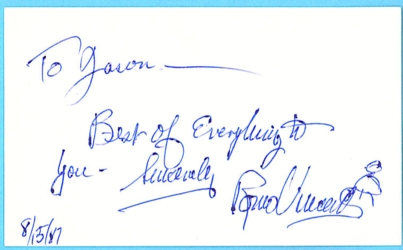 To Jason
Best of Everything to
you - Sincerely
Vincent
8/15/87